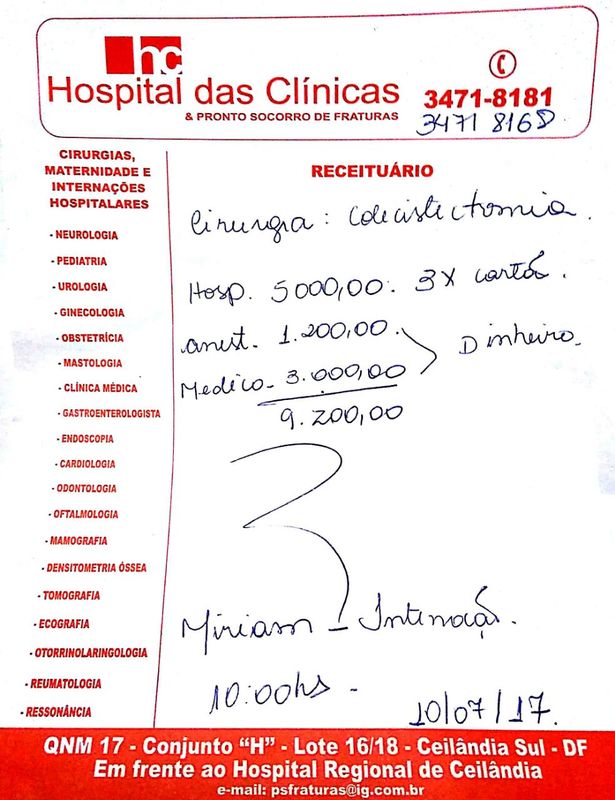 hc
Hospital das Clínicas
& PRONTO SOCORRO DE FRATURAS
3471-8181
3471 8168
CIRURGIAS,
MATERNIDADE E
INTERNAÇÕES
HOSPITALARES
- NEUROLOGIA
- PEDIATRIA
- UROLOGIA
- GINECOLOGIA
- OBSTETRÍCIA
- MASTOLOGIA
- CLÍNICA MÉDICA
- GASTROENTEROLOGISTA
- ENDOSCOPIA
- CARDIOLOGIA
- ODONTOLOGIA
- OFTALMOLOGIA
- MAMOGRAFIA
- DENSITOMETRIA ÓSSEA
- TOMOGRAFIA
- ECOGRAFIA
- OTORRINOLARINGOLOGIA
- REUMATOLOGIA
- RESSONÂNCIA
RECEITUÁRIO
Cirurgia: Colecistectomia.
Hosp. 5000,00: 3x cartã.
anest. 1.200,00.
Dinheiro.
Medico- 3.000,00
9.200,00
Miriam - Internação.
10:00hs -
10/07/17.
QNM 17 - Conjunto “H” - Lote 16/18 - Ceilândia Sul - DF
Em frente ao Hospital Regional de Ceilândia
e-mail: psfraturas@ig.com.br